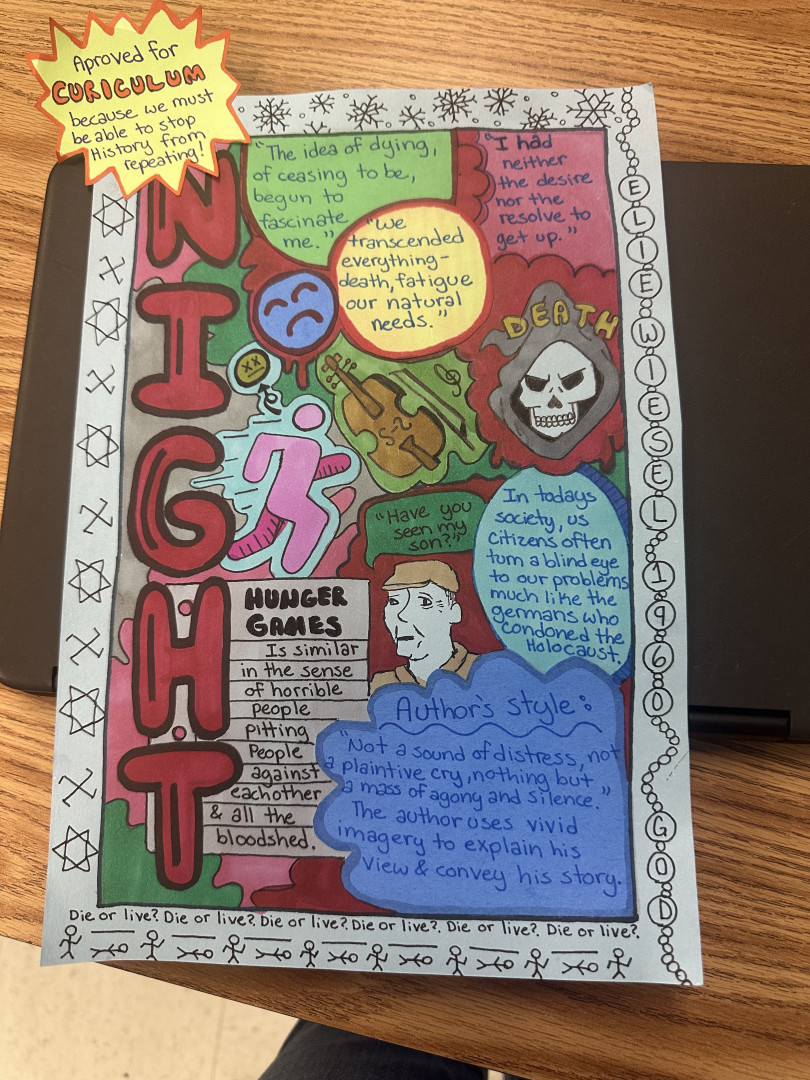 Aproved for
CURICULUM
because we must
be able to stop
History from
repeating!
NIGHT
"The idea of dying,
of ceasing to be,
begun to
fascinate
me."
"I had
neither
the desire
nor the
resolve to
get up."
"We
transcended
everything-
death, fatigue
our natural
needs."
DEATH
S-2
"Have you
seen my
son?"
In todays
society, us
Citizens often
turn a blind eye
to our problems
much like the
germans who
condoned the
Holocaust.
HUNGER
GAMES
Is similar
in the sense
of horrible
people
pitting
People
against
eachother
& all the
bloodshed.
Author's style:
"Not a sound of distress, not
a plaintive cry, nothing but
a mass of agony and silence."
The author uses vivid
imagery to explain his
view & convey his story.
ELIE WIESEL 1960 GOD
Die or live? Die or live? Die or live? Die or live? Die or live? Die or live?